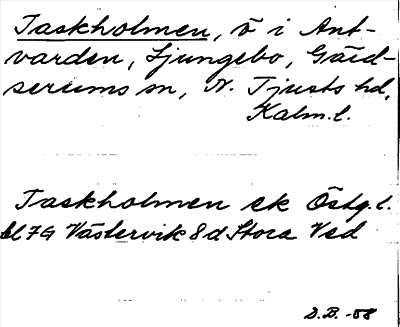 Taskholmen, ö i Ant-
varden, Ljungebo, Gärd-
serums sn, N. Tjusts hd,
Kalm.l.
Taskholmen ek Östg.l.
bl 7G Västervik 8d Stora Ved
D.B. -58